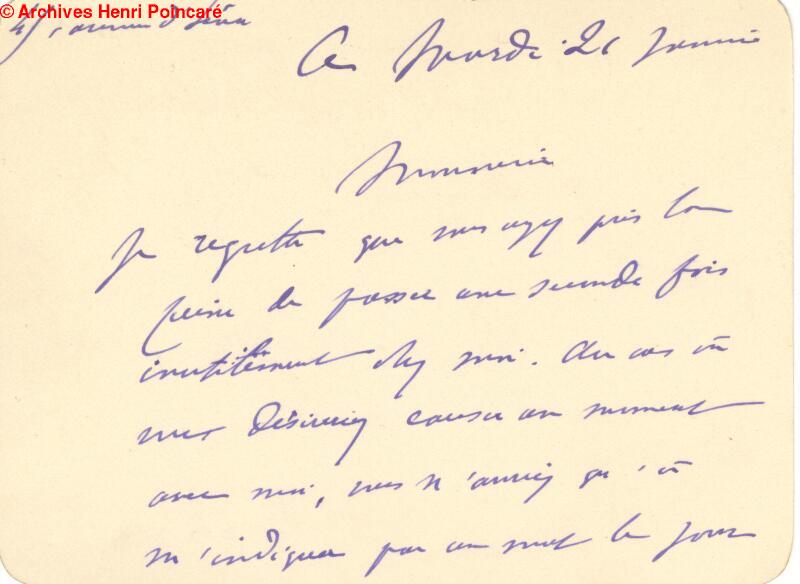 © Archives Henri Poincaré
45, avenue d'Iéna
Ce Mardi 21 Janvier
Monsieur
Je regrette que vous ayez pris la
peine de passer une seconde fois
inutilement chez moi. Au cas où
vous désireriez causer un moment
avec moi, vous n'auriez qu'à
m'indiquer par un mot le jour